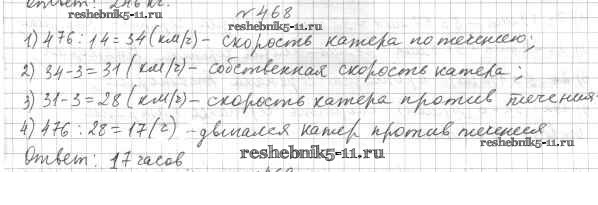 Ответ: 246 кг.
reshebnik5-11.ru
№468
1) 476 : 14 = 34 (км/ч) - скорость катера по течению;
reshebnik5-11.ru
2) 34-3=31 (км/ч) - собственная скорость катера;
3) 31-3=28 (км/ч) - скорость катера против течения
4) 476 : 28 = 17 (ч) - двигался катер против течения
reshebnik5-11.ru
Ответ: 17 часов
reshebnik5-11.ru